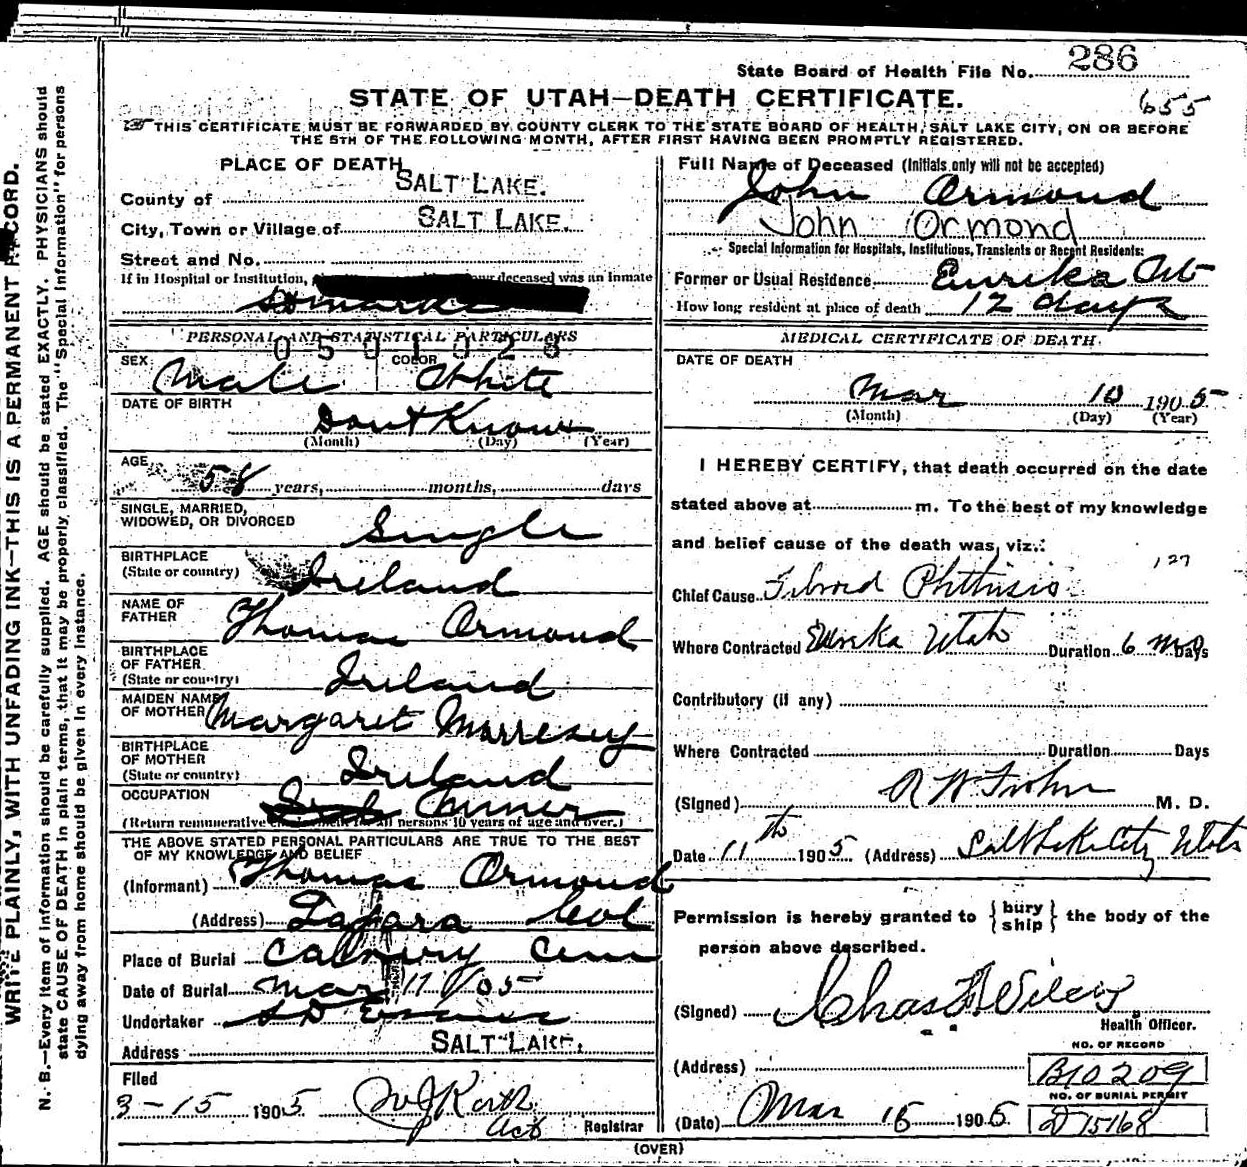 State Board of Health File No. 286
655
STATE OF UTAH—DEATH CERTIFICATE.
THIS CERTIFICATE MUST BE FORWARDED BY COUNTY CLERK TO THE STATE BOARD OF HEALTH, SALT LAKE CITY, ON OR BEFORE
THE 5TH OF THE FOLLOWING MONTH, AFTER FIRST HAVING BEEN PROMPTLY REGISTERED.
WRITE PLAINLY, WITH UNFADING INK—THIS IS A PERMANENT RECORD.
N. B.—Every item of information should be carefully supplied. AGE should be stated EXACTLY. PHYSICIANS should
state CAUSE OF DEATH in plain terms, that it may be properly classified. The "Special Information" for persons
dying away from home should be given in every instance.
PLACE OF DEATH
County of SALT LAKE.
City, Town or Village of SALT LAKE.
Street and No.
If in Hospital or Institution, deceased was an inmate
St Marks
PERSONAL AND STATISTICAL PARTICULARS
0501028
SEX Male COLOR White
DATE OF BIRTH
Dont Know
(Month) (Day) (Year)
AGE
58 years, months, days
SINGLE, MARRIED,
WIDOWED, OR DIVORCED Single
BIRTHPLACE
(State or country) Ireland
NAME OF
FATHER Thomas Ormond
BIRTHPLACE
OF FATHER
(State or country) Ireland
MAIDEN NAME
OF MOTHER Margaret Marresey
BIRTHPLACE
OF MOTHER
(State or country) Ireland
OCCUPATION Miner
(Return remunerative employment for all persons 10 years of age and over.)
THE ABOVE STATED PERSONAL PARTICULARS ARE TRUE TO THE BEST
OF MY KNOWLEDGE AND BELIEF
(Informant) Thomas Ormond
(Address) Lapara Col
Place of Burial Calvery Cem
Date of Burial Mar 17 / 05
Undertaker S D Evans
Address SALT LAKE.
Filed
3-15 1905 Registrar
Act
Full Name of Deceased (Initials only will not be accepted)
John Ormond
John Ormond
Special Information for Hospitals, Institutions, Transients or Recent Residents:
Former or Usual Residence Eureka Ut
How long resident at place of death 12 days
MEDICAL CERTIFICATE OF DEATH.
DATE OF DEATH
Mar 10 1905
(Month) (Day) (Year)
I HEREBY CERTIFY, that death occurred on the date
stated above at m. To the best of my knowledge
and belief cause of the death was, viz.:
127
Chief Cause Fibroid Phthisis
Where Contracted Eureka Utah Duration 6 mo Days
Contributory (if any)
Where Contracted Duration Days
(Signed) M. D.
Date 11th 1905 (Address) Salt Lake City Utah
Permission is hereby granted to { bury ship } the body of the
person above described.
(Signed) Chas F Wilcox
Health Officer.
(Address)
NO. OF RECORD
B10209
NO. OF BURIAL PERMIT
D 15168
(Date) Mar 15 1905
(OVER)